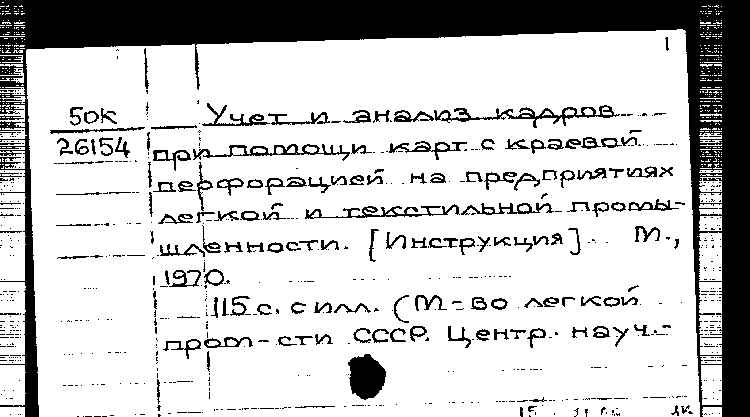 1
50К Учет и анализ кадров
26154 при помощи карт с краевой
перфорацией на предприятиях
легкой и текстильной промы-
шленности. [Инструкция]. М.,
1970.
115 с. с илл. (М-во легкой
пром-сти СССР. Центр. науч.-